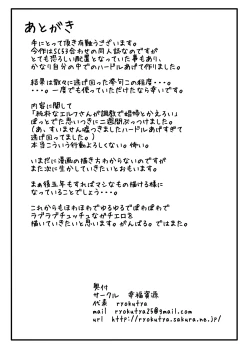 あとがき
手にとって頂き有難うございます。
今作はSC53合わせの同人誌なのですが
とても恐ろしい配置となっていた事もあり、
かなり自分の中でのハードルあげて作りました。
結果は散々に逃げ回った挙句この程度・・・。
・・・。一度でも使っていただけたなら幸いです。
内容に関して
「純朴なエルフさんが調教で娼婦とかえろい」
ぱっとでた思いつきに二週間ぶっつけました。
(あ、すいません嘘つきましたハードルあげすぎて
逃げ回ってました)
本当こういう行動よろしくない。怖い。
いまだに漫画の描き方わからないのですが
また次に生かしていきたいとおもいます。
まぁ後五年もすればマシなもの描ける様に
なっていることでしょう・・・。
これからもほわほわでゆるゆるでぽわぽわで
ラブラブチュッチュなガチエロを
描いていきたいと思いますとがんばる。ではまた。
奥付
サークル 幸福資源
代表 ryokutya
mail ryokutya25@gmail.com
url http://ryokutya.sakura.ne.jp/